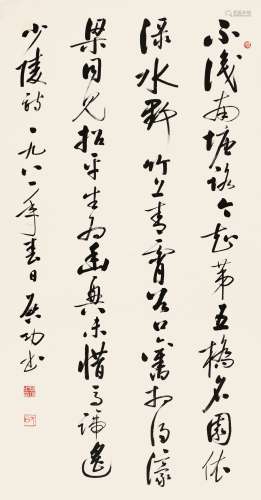 不識南塘路今知第五橋名園依
淥水野竹上青霄谷口舊相得濠
梁同見招平生為幽興未惜馬蹄遙
少陵詩 一九八一年春日 启功書